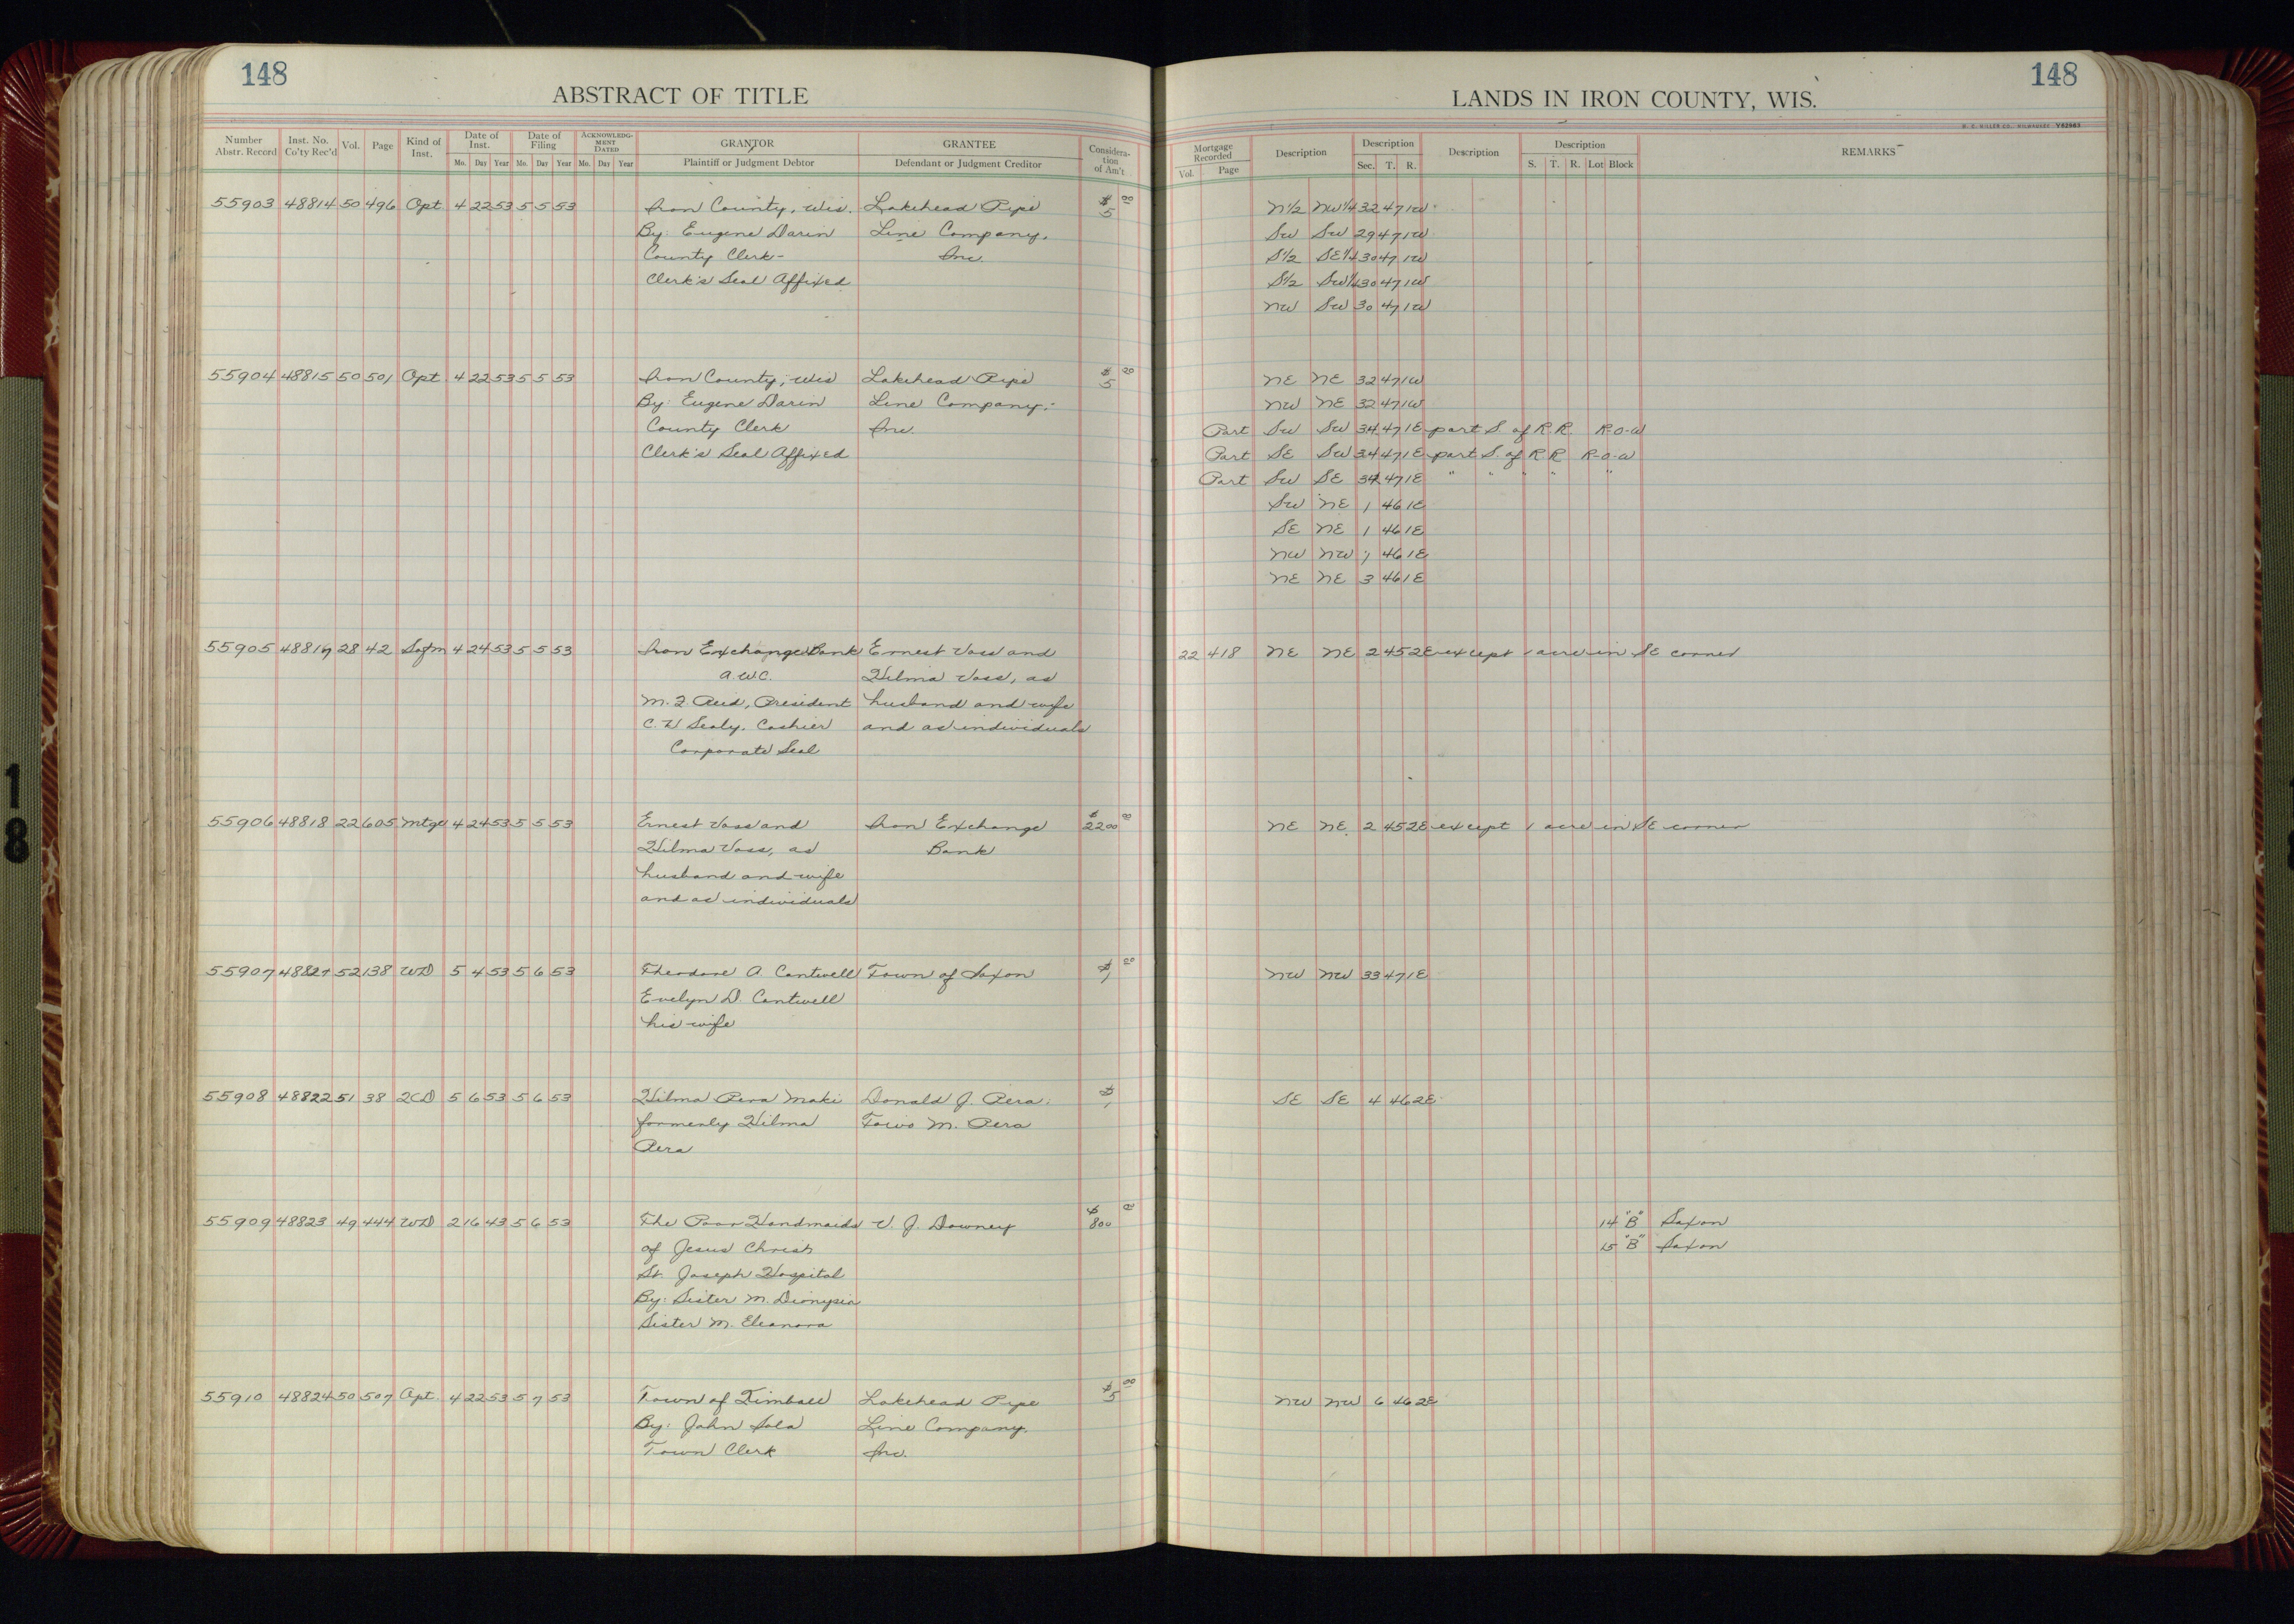 148
ABSTRACT OF TITLE
Number Abstr. Record Inst. No. Co'ty Rec'd Vol. Page Kind of Inst. Date of Inst. Date of Filing ACKNOWLEDGMENT DATED GRANTOR GRANTEE Consideration of Am't
Mo. Day Year Mo. Day Year Mo. Day Year Plaintiff or Judgment Debtor Defendant or Judgment Creditor
55903 48814 50 496 Opt 4 22 53 5 5 53 Iron County, Wis. Lakehead Pipe $5 00
By: Eugene Darin Line Company,
County Clerk- Inc.
Clerk's Seal Affixed
55904 48815 50 501 Opt 4 22 53 5 5 53 Iron County, Wis Lakehead Pipe $5
By: Eugene Darin Line Company,
County Clerk Inc.
Clerk's Seal Affixed
55905 28 42 4 24 53 5 5 53 Iron Exchange Bank Ernest Voss and
A.W.C. Hilma Voss, as
M. F. Reid, President husband and wife
Sealy, Cashier and as individuals
Corporate Seal
55906 48818 22 605 Mtge 4 24 53 5 5 53 Ernest Voss and Iron Exchange $2200 00
Hilma Voss, as Bank
husband and wife
and as individuals
55907 52 138 WD 5 4 53 5 6 53 Theodore A. Cantwell Town of Saxon $1
Evelyn D. Cantwell
his wife
55908 48822 51 38 QCD 5 6 53 5 6 53 Hilma Pera Maki Donald J. Pera $1
formerly Hilma Toivo M. Pera
Pera
55909 48823 49 444 WD 2 16 43 5 6 53 The Poor Handmaids V. J. Downey $800 00
of Jesus Christ
St. Joseph Hospital
By: Sister M. Dionysia
Sister M. Eleanora
55910 48824 50 507 Opt. 4 22 53 5 7 53 Town of Kimball Lakehead Pipe $5 00
By: John Sola Line Company,
Town Clerk Inc.
148
LANDS IN IRON COUNTY, WIS.
H. C. MILLER CO., MILWAUKEE V82983
Mortgage Recorded Description Description Description Description REMARKS
Vol. Page Sec. T. R. S. T. R. Lot Block
N1/2 NW1/4 32 47 1W
SW SW 29 47 1W
S1/2 SE1/4 30 47 1W
S1/2 SW1/4 30 47 1W
NW SW 30 47 1W
NE NE 32 47 1W
NW NE 32 47 1W
Part SW SW 34 47 1E part S. of R R R-O-W
Part SE SW 34 47 1E part S. of R R R-O-W
Part SW SE 34 47 1E " " " " "
SW NE 1 46 1E
SE NE 1 46 1E
NW NW 1 46 1E
NE NE 3 46 1E
22 418 NE NE 2 45 2E except 1 acre in SE corner
NE NE 2 45 2E except 1 acre in SE corner
NW NW 33 47 1E
SE SE 4 46 2E
14 "B" Saxon
15 "B" Saxon
NW NW 6 46 2E
18